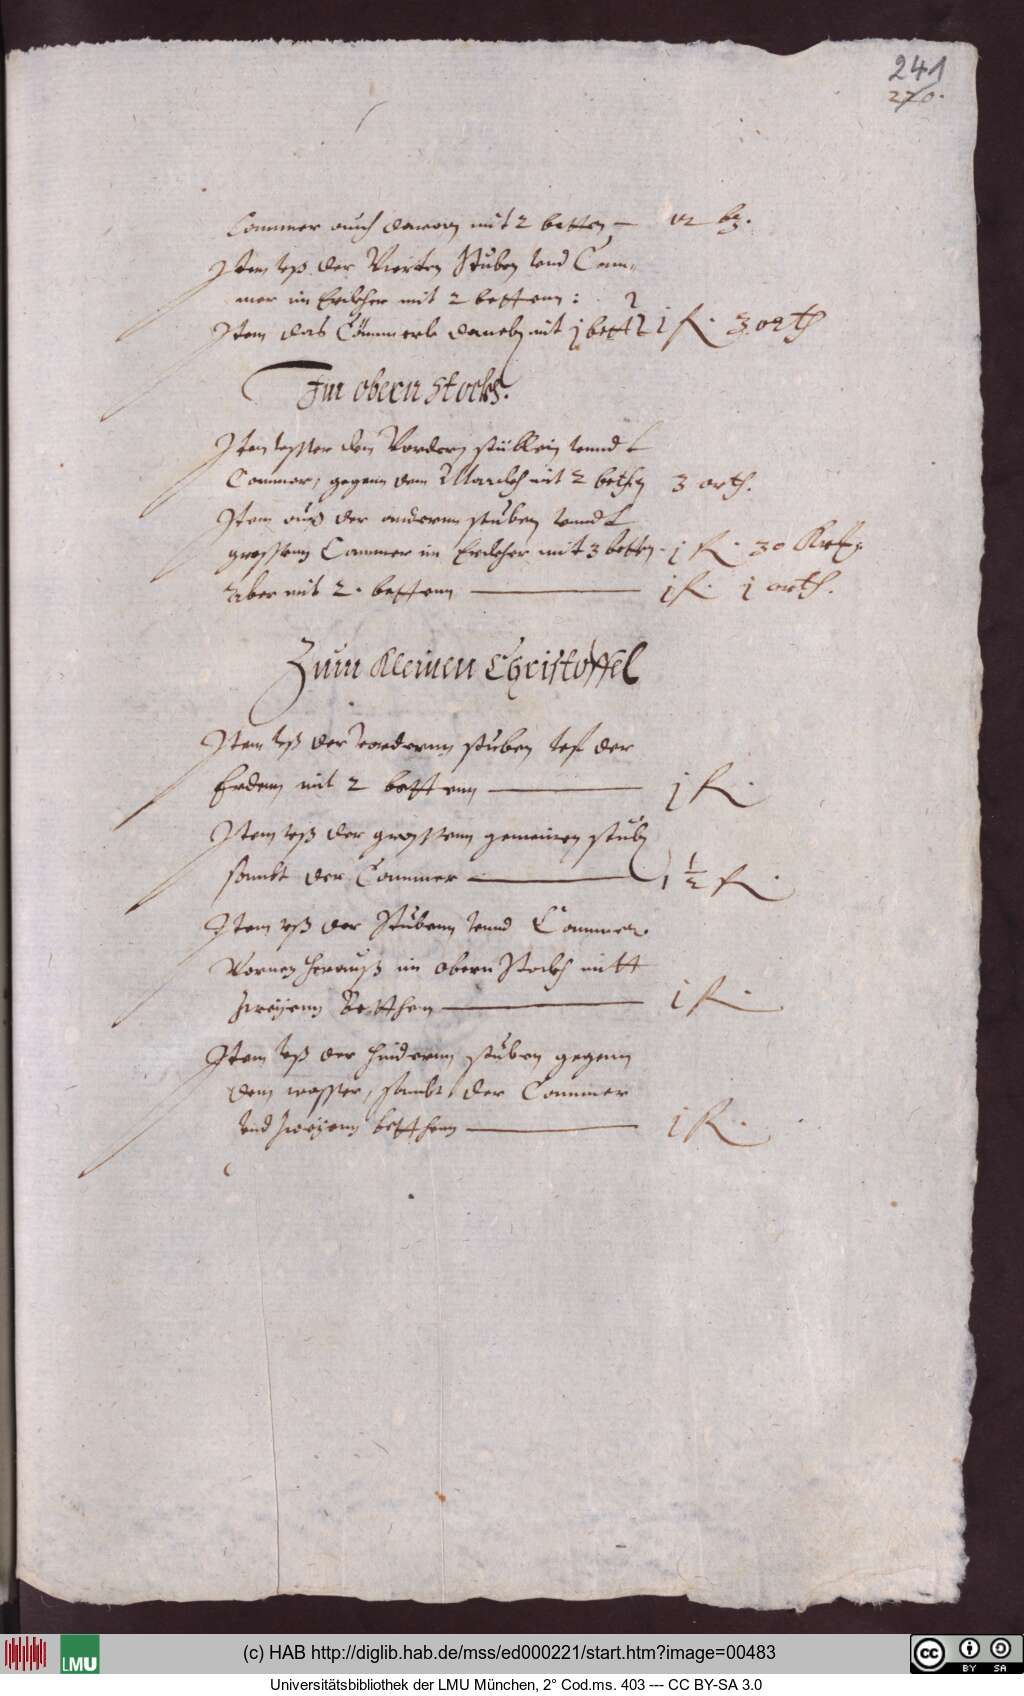 241
270.
Cammer auch daran mit 2 betten — 12 bz.
Item vß der Vierten Stuben vnd Cam¬
mer im Erckher mit 2 bettenn :
Item das Cämmerle daneben mit j bett j fl. 3 orth
Im obern Stockh.
Item vsser dem Vordern stüblein vnnd
Cammer, gegenn dem Marckh mit 2 bethen 3 orth.
Item aus der anderen stuben vnnd
grossenn Cammer im Erckher mit 3 betten. j fl. 30 Kr.
Aber mit 2. bettenn — j fl. j orth.
Zum kleinen Christoffel
Item vß der vorderen stuben vf der
Erdenn mit 2 bettenn — j fl.
Item vß der grossenn gemeinen stuben
sambt der Cammer — 1 1/2 fl.
Item vß der Stubenn vnnd Cammer
Vornen herauß im obern Stockh mitt
zweyenn Betthen — j fl.
Item vß der hinderen stuben gegenn
dem wasser, sambt der Cammer
vnd zweyenn betthen — j fl.
LMU
(c) HAB http://diglib.hab.de/mss/ed000221/start.htm?image=00483
cc BY SA
Universitätsbibliothek der LMU München, 2° Cod.ms. 403 --- CC BY-SA 3.0